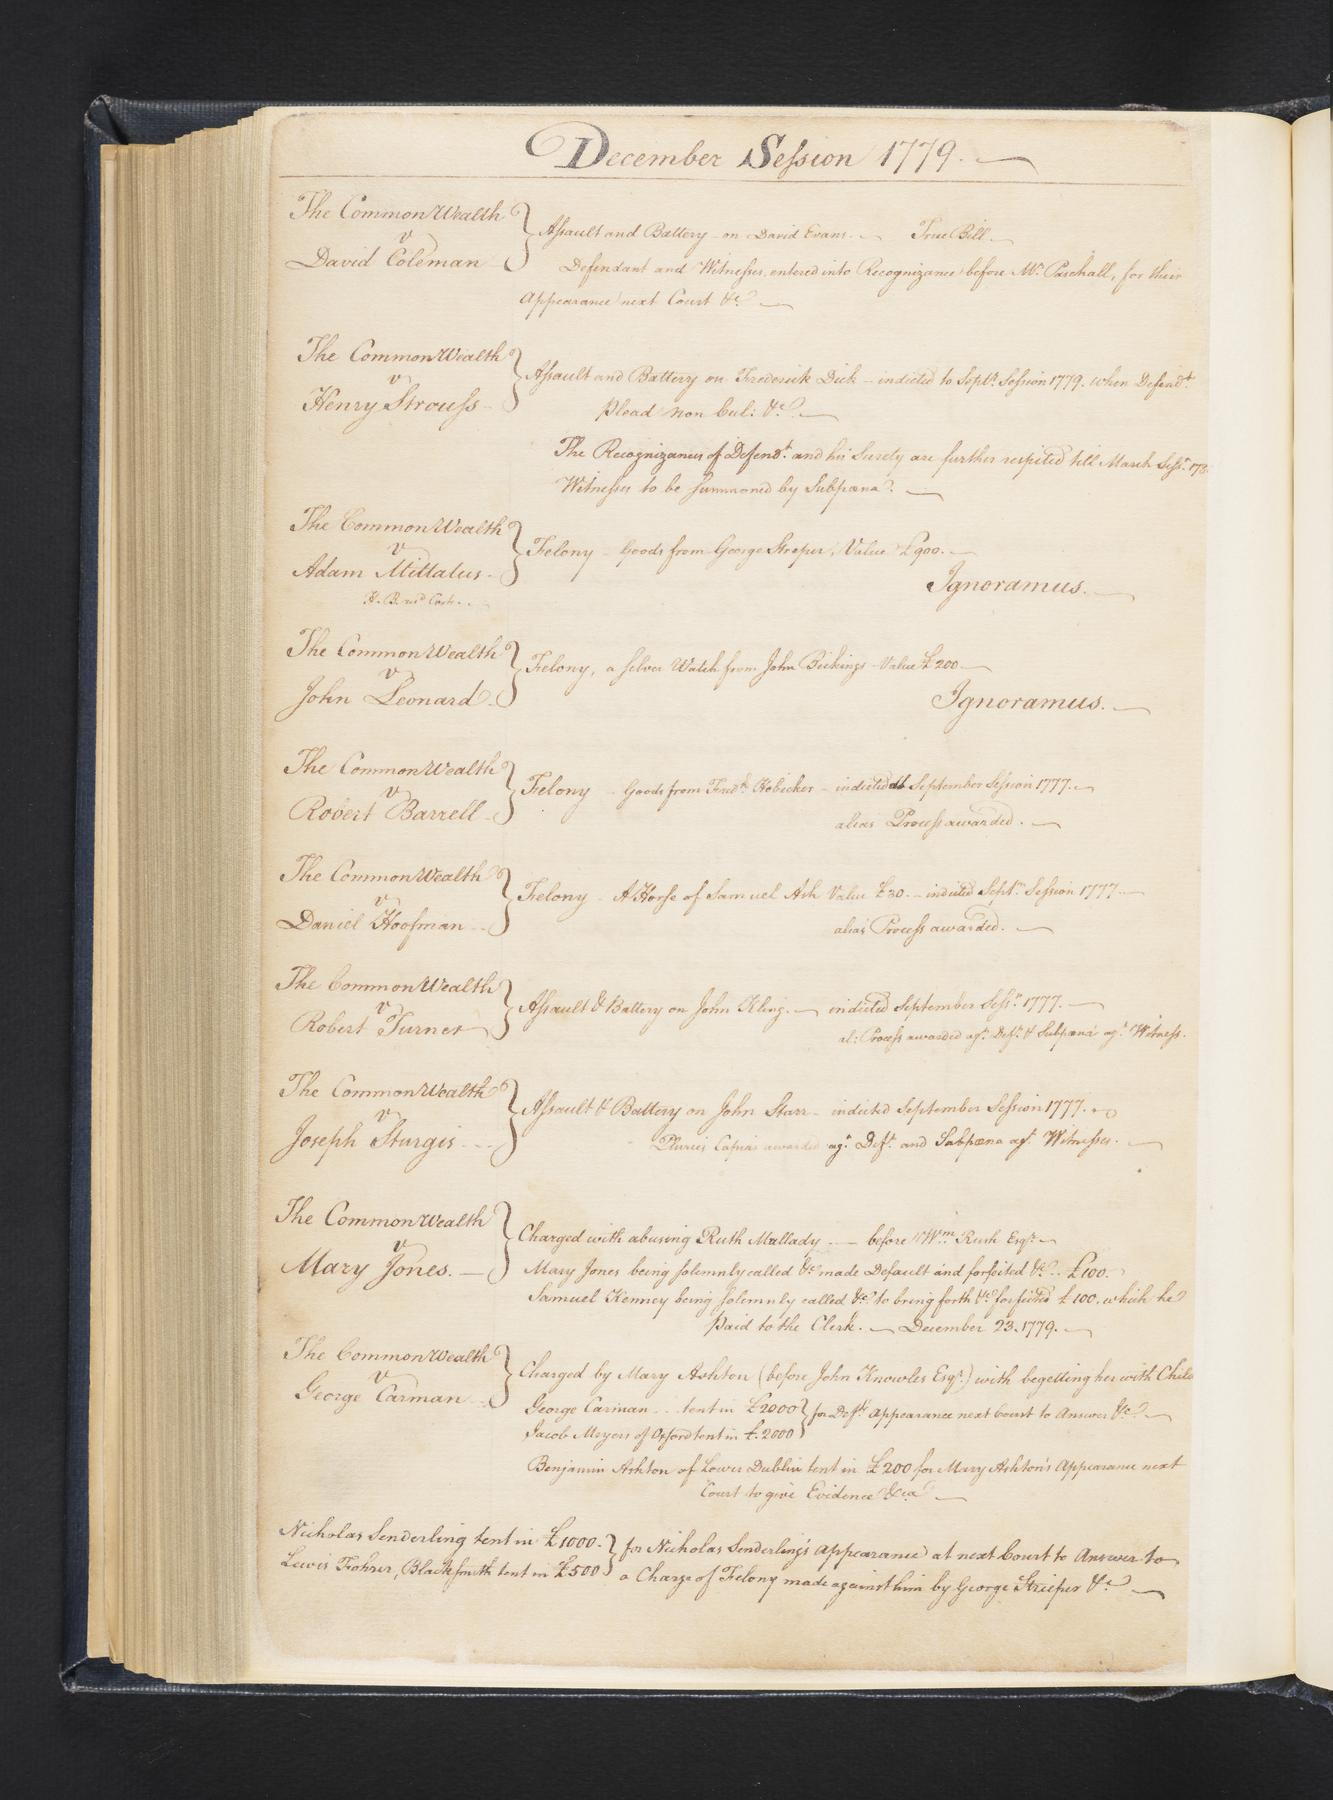 December Session 1779.
The CommonWealth
v
David Coleman
Assault and Battery on David Evans. True Bill
Defendant and Witnesses, entered into Recognizance before Mr. Paschall, for their
Appearance next Court &c.
The CommonWealth
v
Henry Strouss
Assault and Battery on Frederick Dick - indicted to Septr. Session 1779. when Defendt.
Plead non Cul: &c.
The Recognizances of Defendt. and his Surety are further respited till March Sess.n 178
Witnesses to be summoned by Subpœna.
The CommonWealth
v
Adam Mittalus
Felony - Goods from George Streper, Value £900.
Ignoramus.
The CommonWealth
v
John Leonard
Felony, a silver Watch from John Bickings - Value £200
Ignoramus.
The CommonWealth
v
Robert Barrell
Felony - Goods from Fredk. Hobicker - indicted at September Session 1777.
alias Process awarded.
The CommonWealth
v
Daniel Hoofman
Felony - A Horse of Samuel Ash Value £30. - indicted Septr. Session 1777.
alias Process awarded.
The CommonWealth
v
Robert Turner
Assault & Battery on John Kling. indicted September Sess.n 1777.
al: Process awarded agt. Deft. & Subpœna agt. Witness.
The CommonWealth
v
Joseph Sturgis
Assault & Battery on John Starr - indicted September Session 1777.
Pluries Capias awarded agt. Deft. and Subpœna agt. Witnesses.
The Commonwealth
v
Mary Jones.
Charged with abusing Ruth Mallady before Wm. Rush Esqr.
Mary Jones being solemnly called &c. made Default and forfeited &c. £100.
Samuel Kenney being solemnly called &c. to bring forth &c. forfeited £100, which he
Paid to the Clerk. December 23. 1779.
The Commonwealth
v
George Carman
Charged by Mary Ashton (before John Knowles Esqr.) with begetting her with Child
George Carman tent in £2000 } for Defts. Appearance next Court to Answer &c.
Jacob Meyers of Oxford tent in £2000
Benjamin Ashton of Lower Dublin tent in £200 for Mary Ashton's Appearance next
Court to give Evidence &ca.
Nicholas Senderling tent in £1000. } for Nicholas Senderling's appearance at next Court to Answer to
Lewis Fohrer, Blacksmith tent in £500 } a Charge of Felony made against him by George Strieper &c.